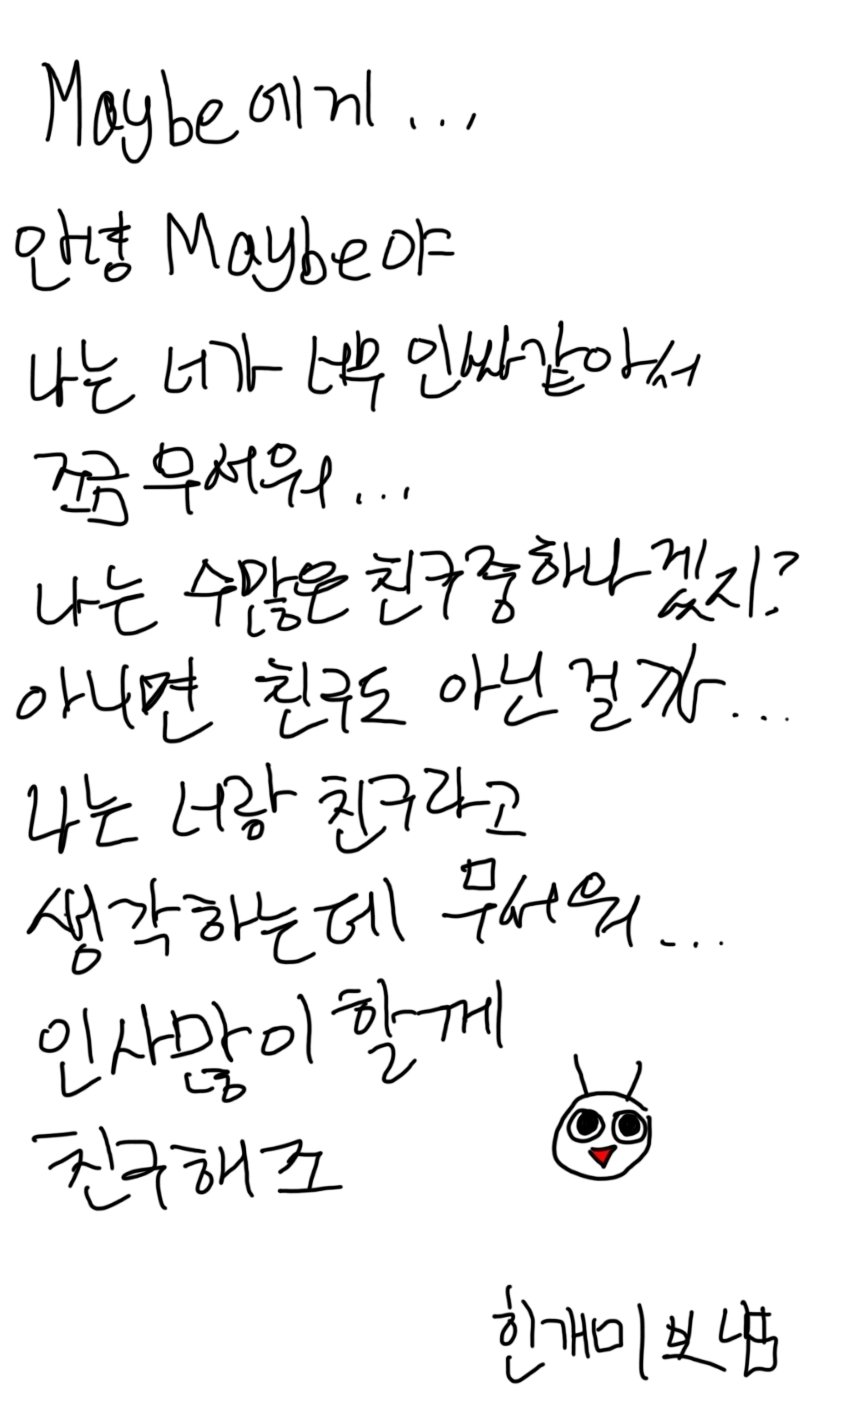 Maybe에게...
안녕 Maybe야
나는 너가 너무 인싸같아서
쪼끔 무서워...
나는 수많은 친구중 하나겠지?
아니면 친구도 아닌걸까...
나는 너랑 친구라고
생각하는데 무서워...
인사많이 할게
친구해조
힌개미 보냄